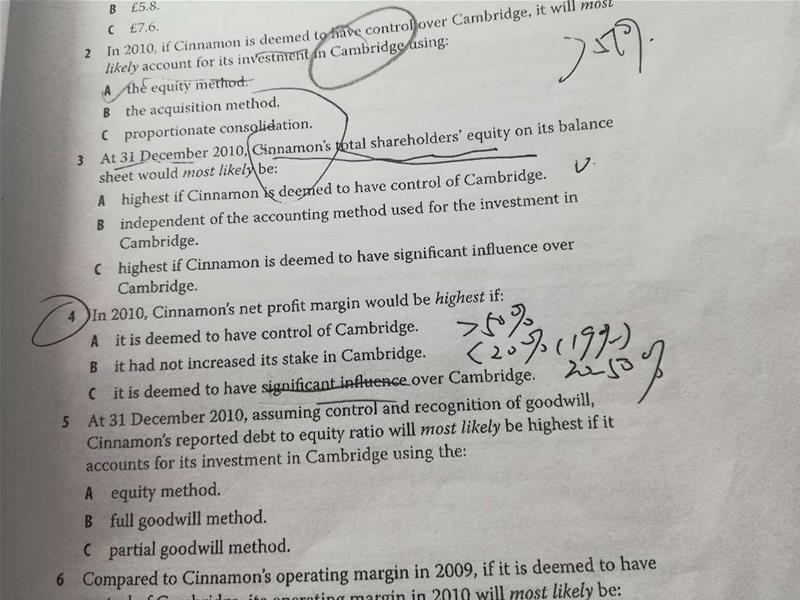 B £5.8.
C £7.6.
2 In 2010, if Cinnamon is deemed to have control over Cambridge, it will most
likely account for its investment in Cambridge using:
>50%.
A the equity method.
B the acquisition method.
C proportionate consolidation.
3 At 31 December 2010, Cinnamon's total shareholders' equity on its balance
sheet would most likely be:
A highest if Cinnamon is deemed to have control of Cambridge.
B independent of the accounting method used for the investment in
Cambridge.
C highest if Cinnamon is deemed to have significant influence over
Cambridge.
4 In 2010, Cinnamon's net profit margin would be highest if:
A it is deemed to have control of Cambridge. >50%
B it had not increased its stake in Cambridge. <20% (19%)
C it is deemed to have significant influence over Cambridge. 20-50%
5 At 31 December 2010, assuming control and recognition of goodwill,
Cinnamon's reported debt to equity ratio will most likely be highest if it
accounts for its investment in Cambridge using the:
A equity method.
B full goodwill method.
C partial goodwill method.
6 Compared to Cinnamon's operating margin in 2009, if it is deemed to have
control of Cambridge, its operating margin in 2010 will most likely be: